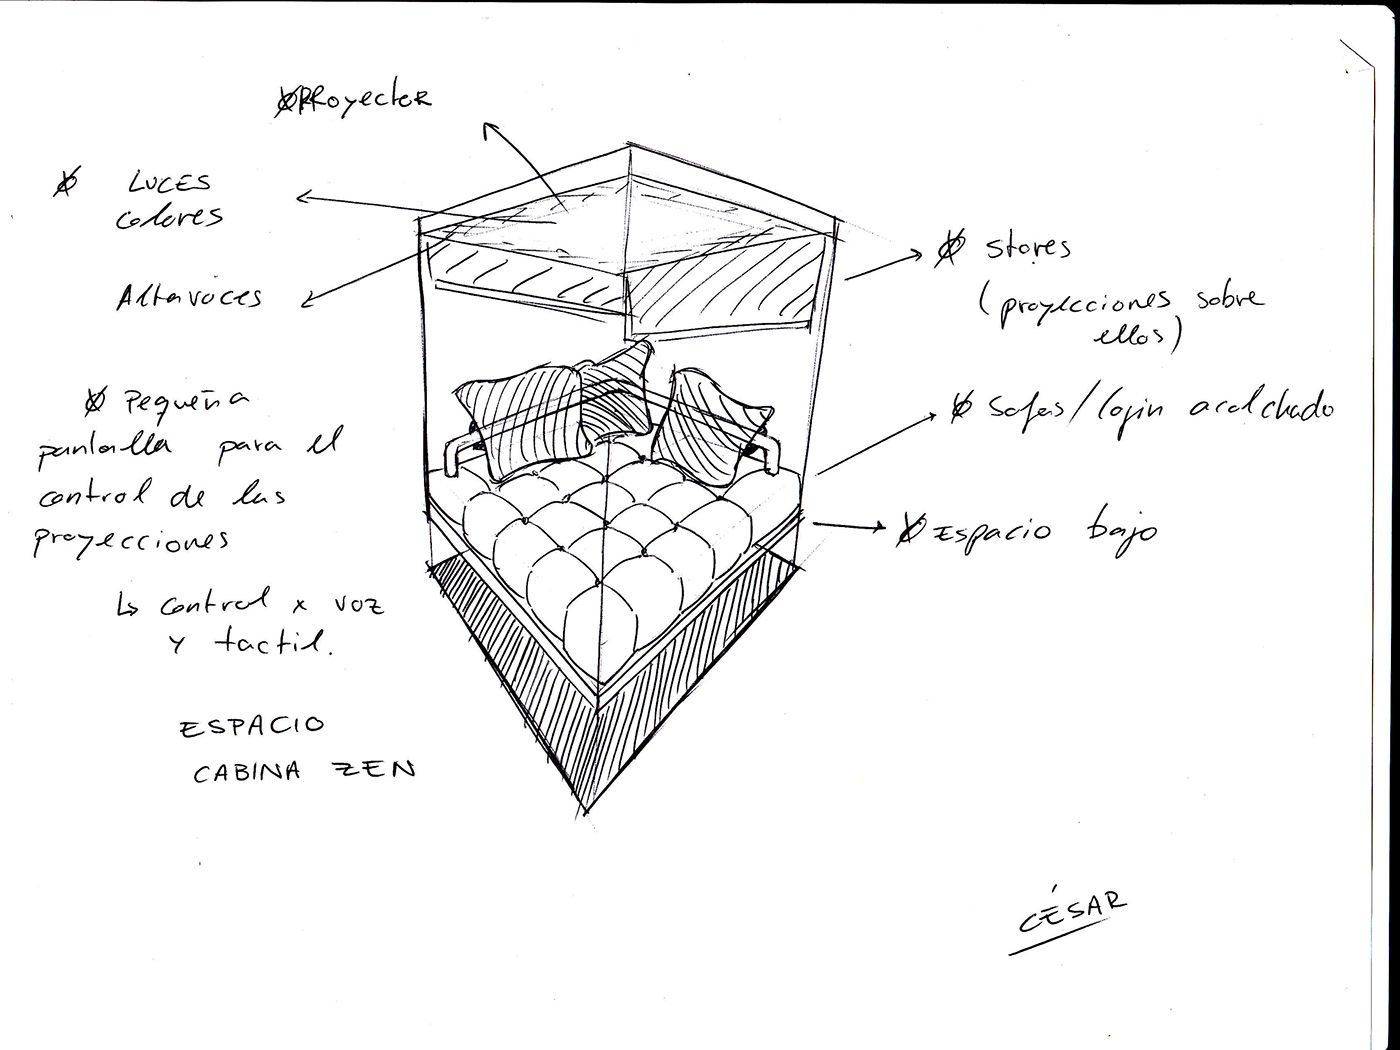 Proyector
LUCES
colores
Altavoces
Pequeña
pantalla para el
control de las
proyecciones
↳ control x voz
y tactil.
ESPACIO
CABINA ZEN
stores
(proyecciones sobre
ellos)
Sofas/cojin acolchado
Espacio bajo
CÉSAR